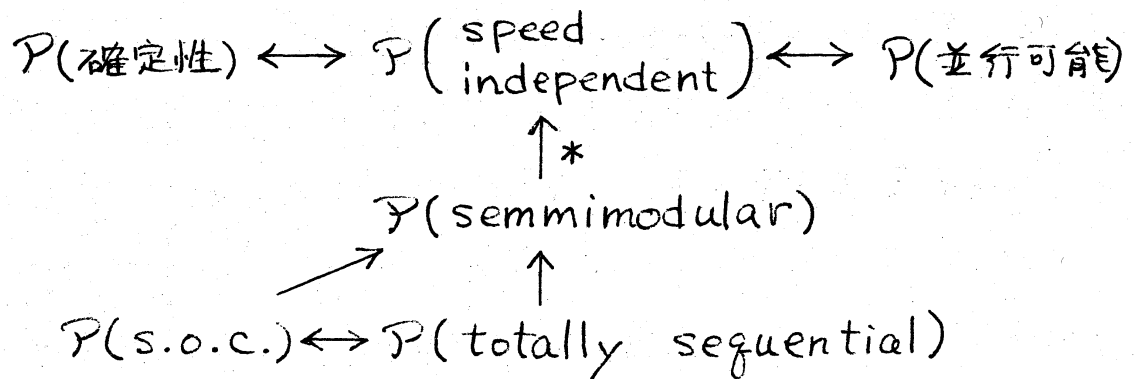 P(確定性) ↔ P(speed independent) ↔ P(並行可能)
↑*
P(semmimodular)
↗ ↑
P(s.o.c.) ↔ P(totally sequential)